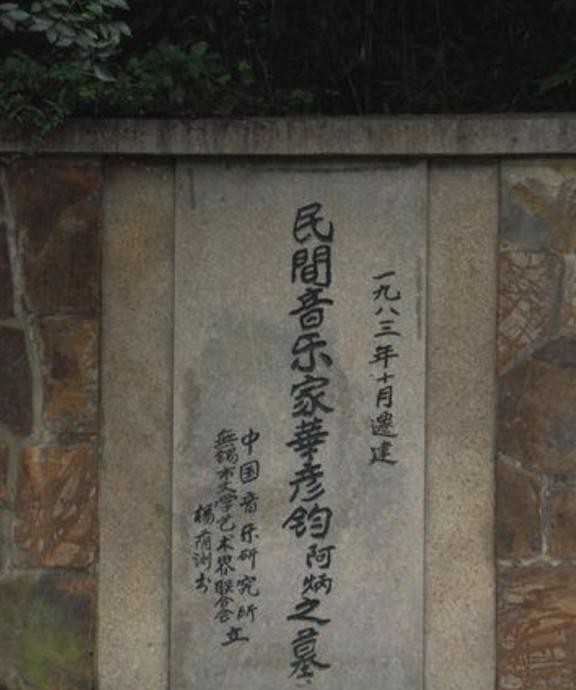 一九八三年十月遷建
民間音乐家華彦鈞阿炳之墓
中国音乐研究所
無锡市文学艺术界联合会立
楊蔭浏书